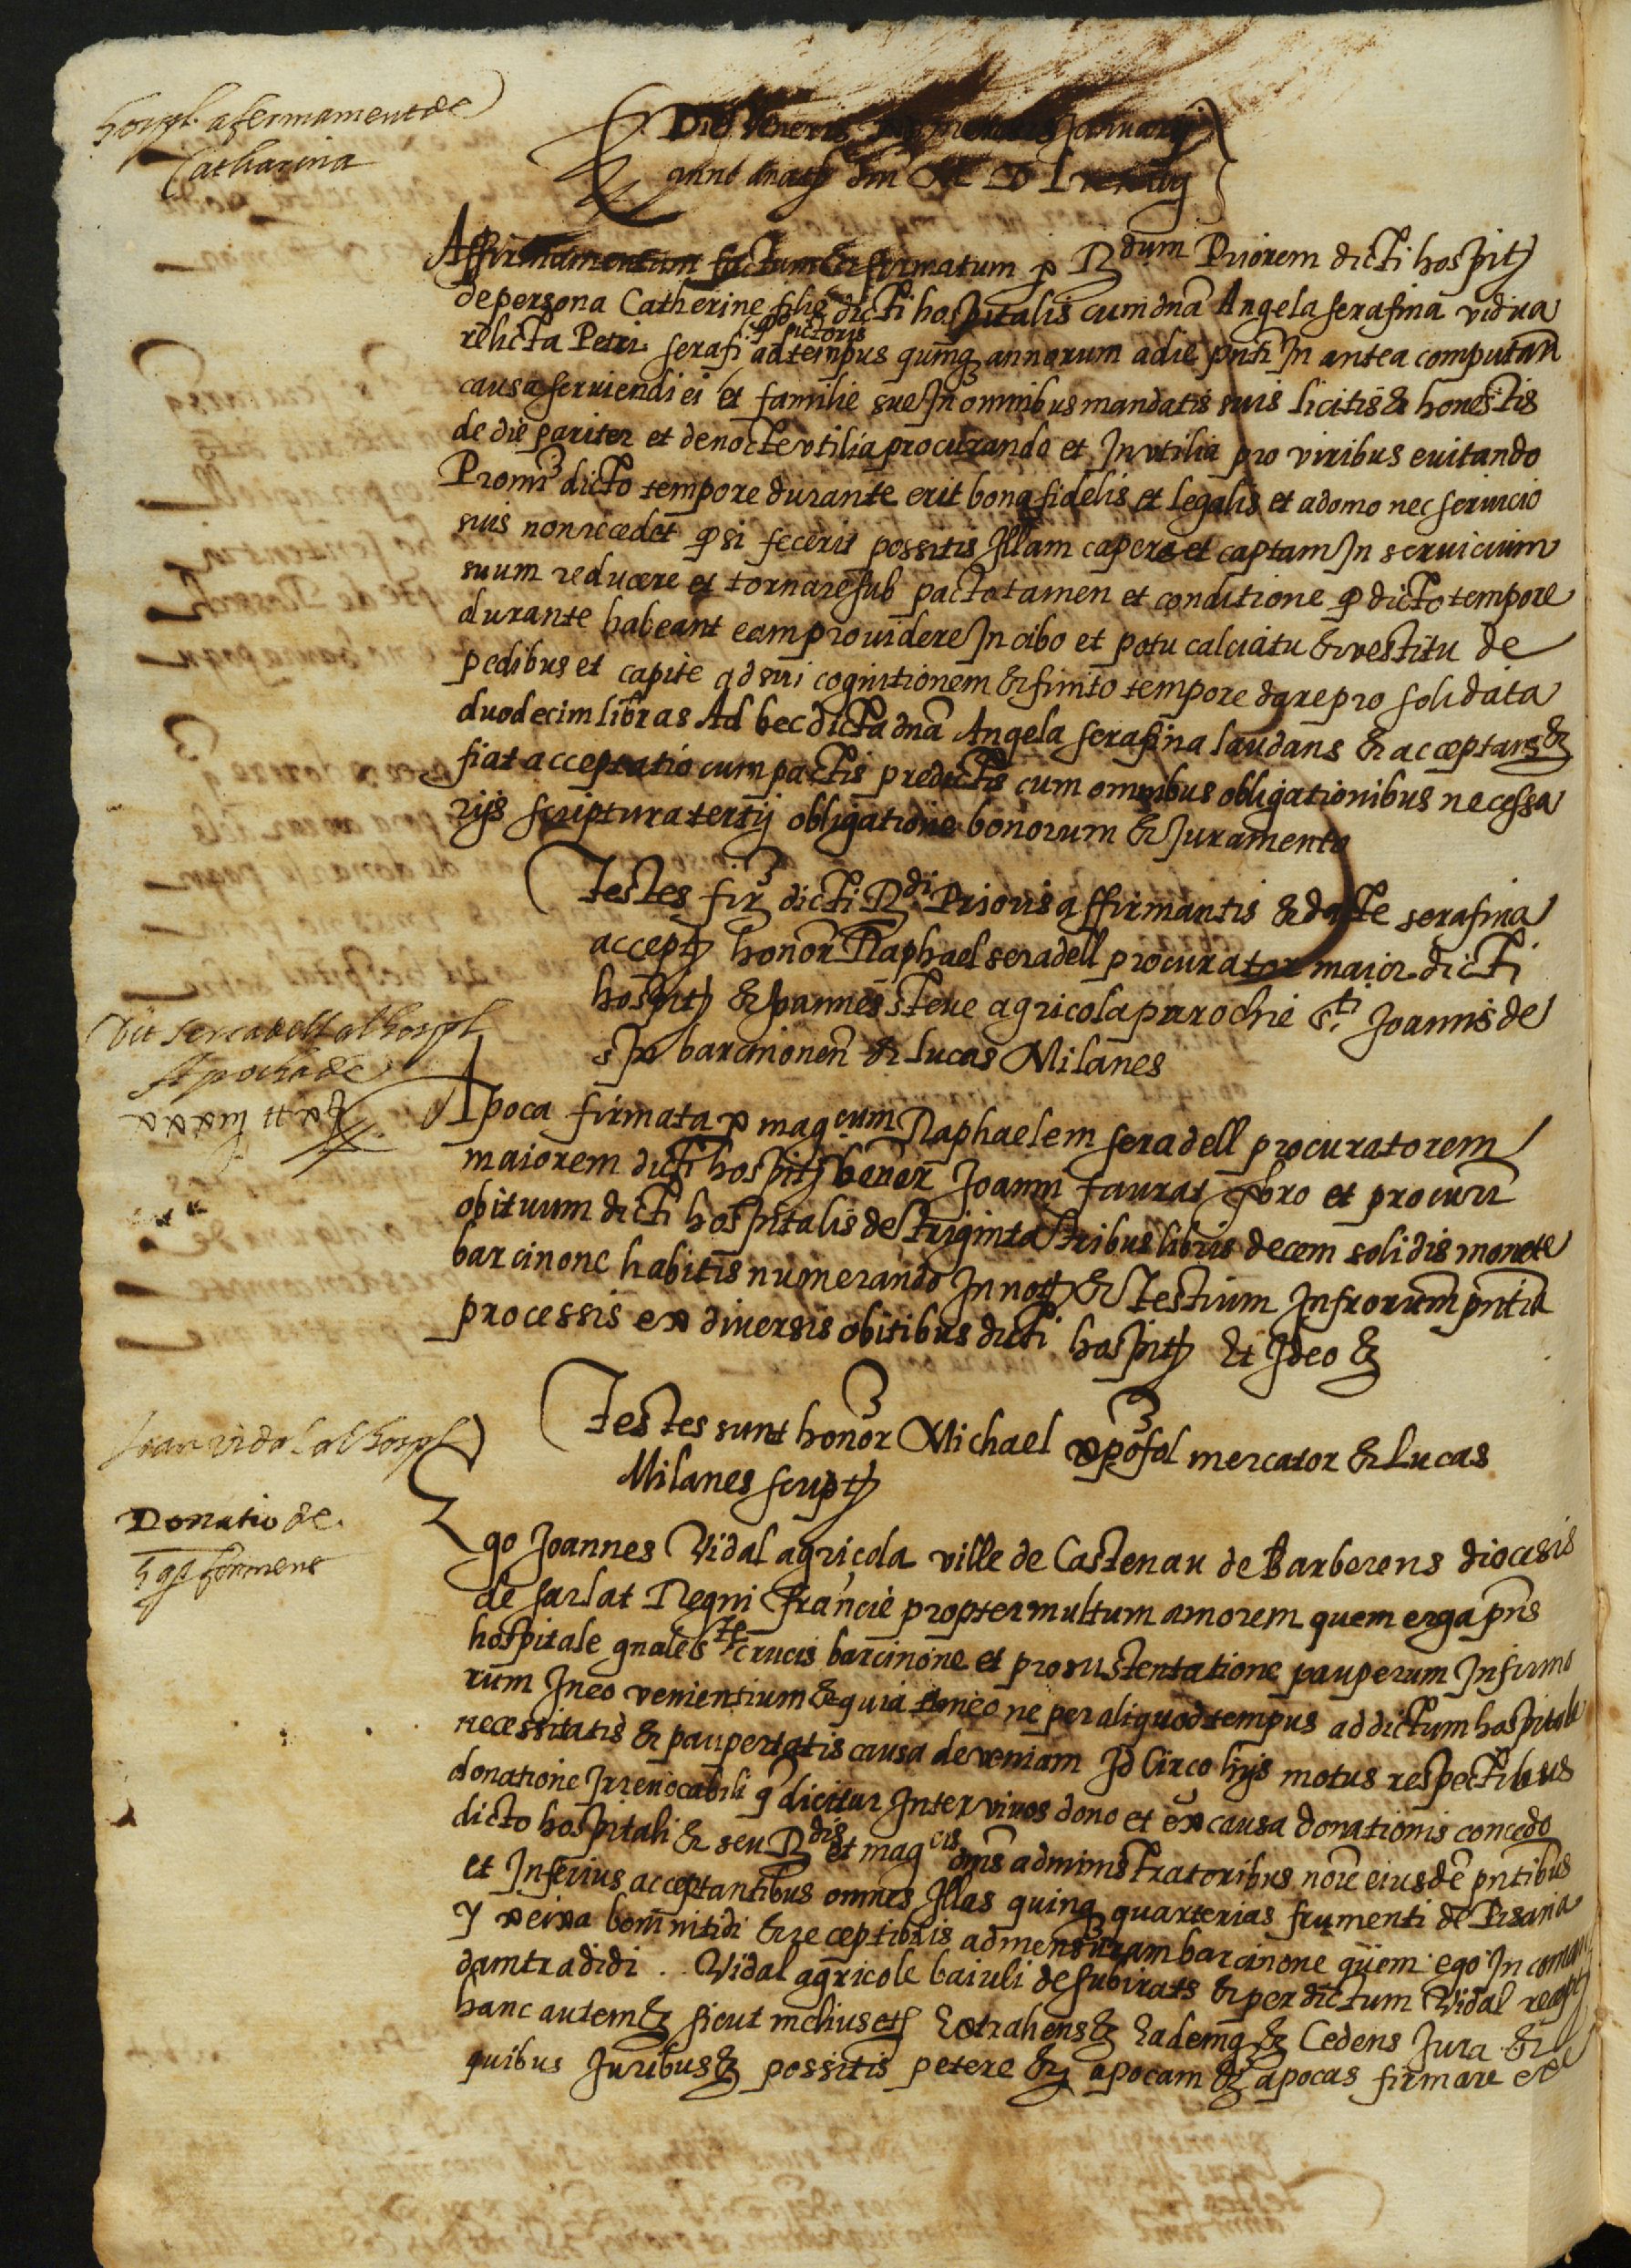 hospl. afermament de
Catharina
Die veneris mensis Januarij
anno a natte dni M D L
Affirmamentum factum & firmatum p Rdum Priorem dicti hospit
de persona Catherine filie dicti hospitalis cum dna Angela serafina vidua
relicta Petri serafi pictoris ad tempus quinq annorum a die pnti In antea computan
causa serviendi ei et familie sue In omnibus mandatis suis licitis & honestis
de die pariter et de nocte vtilia procurando et Invtilia pro viribus euitando
Promi dicto tempore durante erit bona fidelis et legalis et a domo nec seruicio
suis non recedet q si fecerit possitis Illam capere et captam In seruicium
suum reducere et tornare sub pacto tamen et conditione q dicto tempore
durante habeant eam prouidere In cibo et potu calciatu & vestitu de
pedibus et capite ad sui cognitionem & finito tempore dare pro solidata
duodecim libras Ad hec dicta dna Angela serafina laudans & acceptans &
fiat acceptatio cum pactis predictis cum omnibus obligationibus necessa
rijs scriptura tertij obligatione bonorum & Juramento
Testes fir dicti Rdi Prioris affirmantis & dicte serafina
accept honor Raphael seradell procurator maior dicti
hospit & Joannes steue agricola parochie sti Joannis de
s Pi barcinonen & Lucas Milanes
Dit seradell al hospl
Apocha de
Apoca firmata p magcum Raphaelem seradell procuratorem
maiorem dicti hospit vener Joanni faurat pbro et procuri
obituum dicti hospitalis de triginta tribus libris decem solidis monete
barcinone habitis numerando In not & testium Infrorum pntia
processis ex diversis obitibus dicti hospit Et Ideo &
Testes sunt honor Michael xpofol mercator & Lucas
Milanes script
Joan vidal al hospl
Donatio de
5 qs forment
Ego Joannes Vidal agricola ville de Castenau de Barberens diocesis
de sarlat Regni francie propter multum amorem quem erga pns
hospitale gnale Ste crucis barcinone et pro sustentatione pauperum Infirmo
rum In eo venientium & quia timeo ne per aliquod tempus ad dictum hospitale
necessitatis & paupertatis causa deveniam Id Circo hijs motus respectibus
donatione Irrevocabili q dicitur Inter vivos dono et ex causa donationis concedo
dicto hospitali & seu Rdis et magcis dnis administratoribus nore eiusde pntibus
et Inferius acceptantibus omnes Illas quinq quarterias frumenti de Pisana
y xeixa boni nitidi & receptibilis ad mensuram barcinone quem ego In coman
dam tradidi . . Vidal agricole baiuli de subirats & per dictum Vidal recept
hanc autem & sicut melius etc Extrahens & Eademq & Cedens Jura &
quibus Juribus & possitis petere & apocam & apocas firmare et